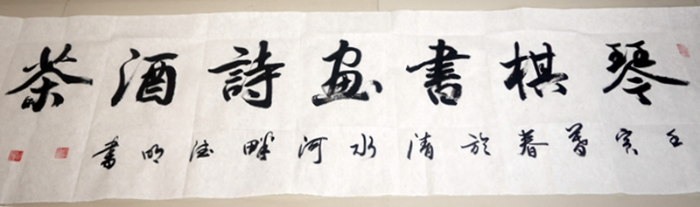 琴棋書画詩酒茶
壬寅暮春於清水河畔德明書